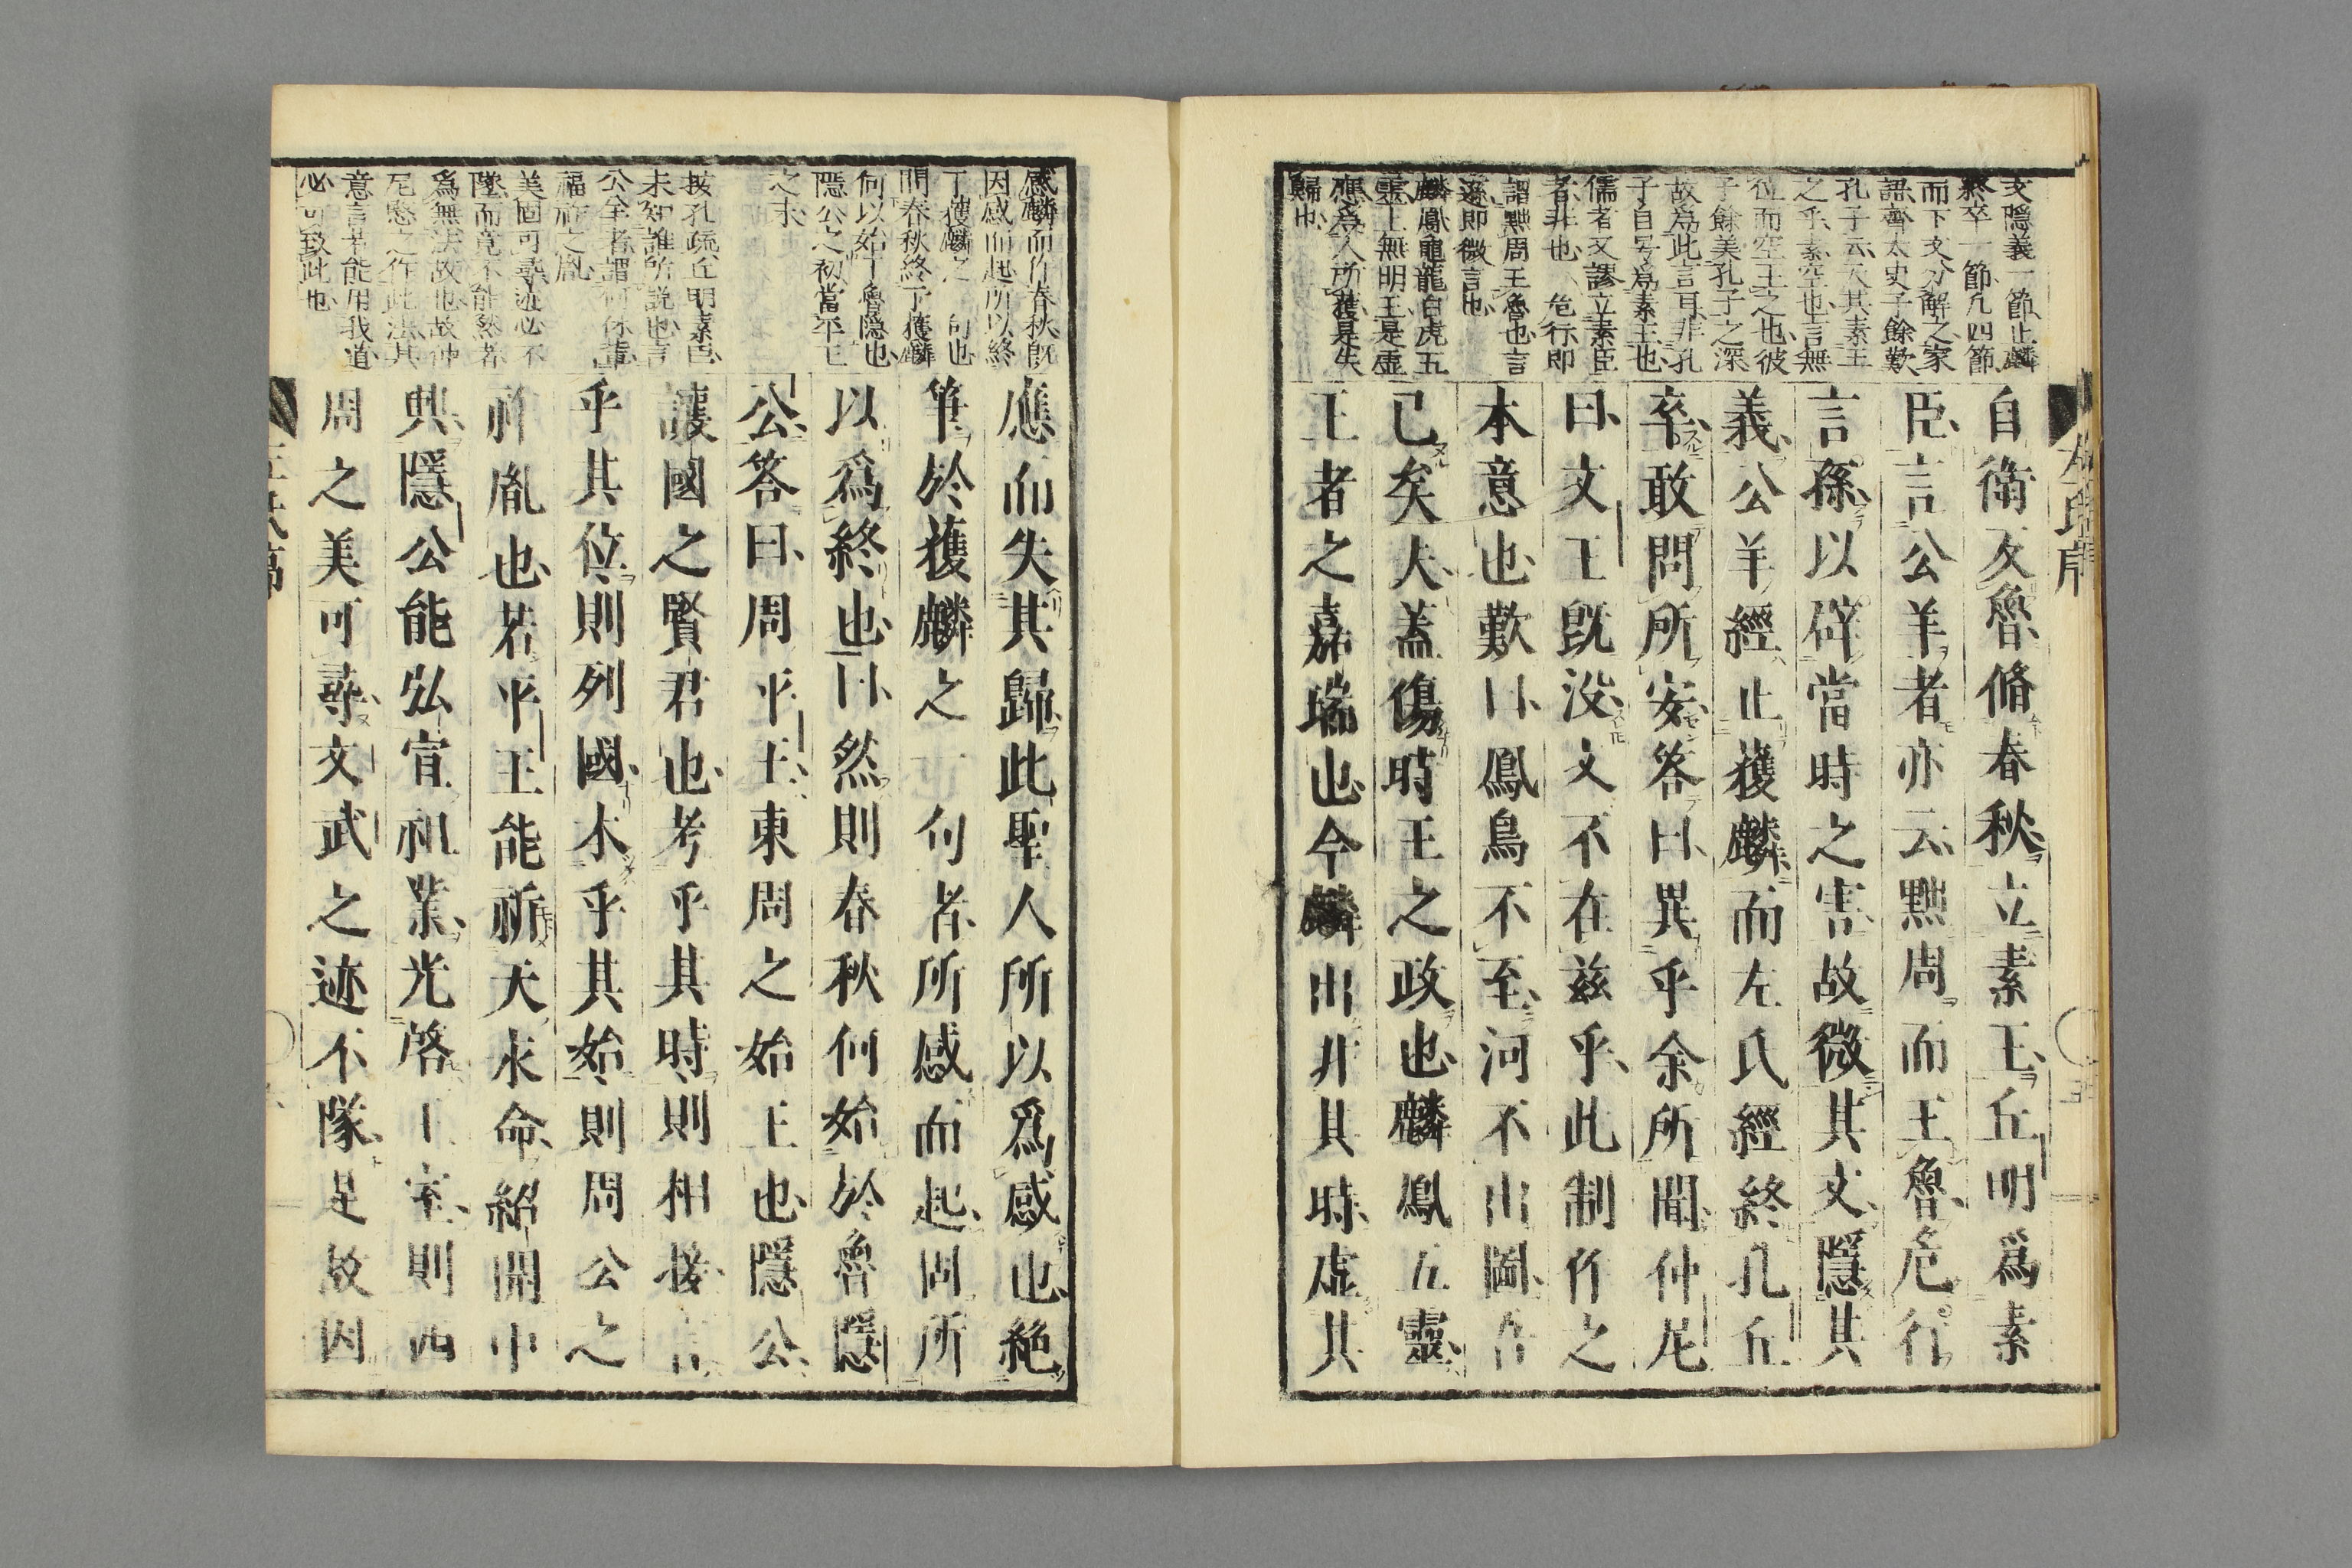 文隱義一節止麟
終卒一節凡四節
而下文分解之家
語齊太史子餘歎
孔子云天其素王
之乎素空也言無
位而空王之也彼
子餘美孔子之深
故爲此言耳非孔
子自号爲素王也
儒者文謬立素臣
者非也 危行即
謂黜周王魯也言
遜即微言也
麟鳳龜龍白虎五
靈上無明王是虛
應爲人所獲是失
歸也
自衛反魯脩春秋立素王丘明爲素
臣言公羊者亦云黜周而王魯危行
言孫以辟當時之害故微其文隱其
義公羊經止獲麟而左氏經終孔丘
卒敢問所安答曰異乎余所聞仲尼
曰文王旣没文不在兹乎此制作之
本意也歎曰鳳鳥不至河不出圖吾
已矣夫蓋傷時王之政也麟鳳五靈
王者之嘉瑞也今麟出非其時虛其
感麟而作春秋旣
因感而起所以終
丁獲麟之一句也
問春秋終丁獲麟
何以始丁魯隱也
隱公之初當平王
之末
按孔疏丘明素臣
未知誰所說也言
公羊者謂何休輩
福祚之胤
美固可尋迹必不
墜而竟不能然者
爲無法故也故仲
尼愍之作此法其
意言若能用我道
必可致此也
應而失其歸此聖人所以爲感也絶
筆於獲麟之一句者所感而起固所
以爲終也曰然則春秋何始於魯隱
公答曰周平王東周之始王也隱公
讓國之賢君也考乎其時則相接言
乎其位則列國本乎其始則周公之
祚胤也若平王能祈天永命紹開中
興隱公能弘宣祖業光啓王室則西
周之美可尋文武之迹不隊是故因